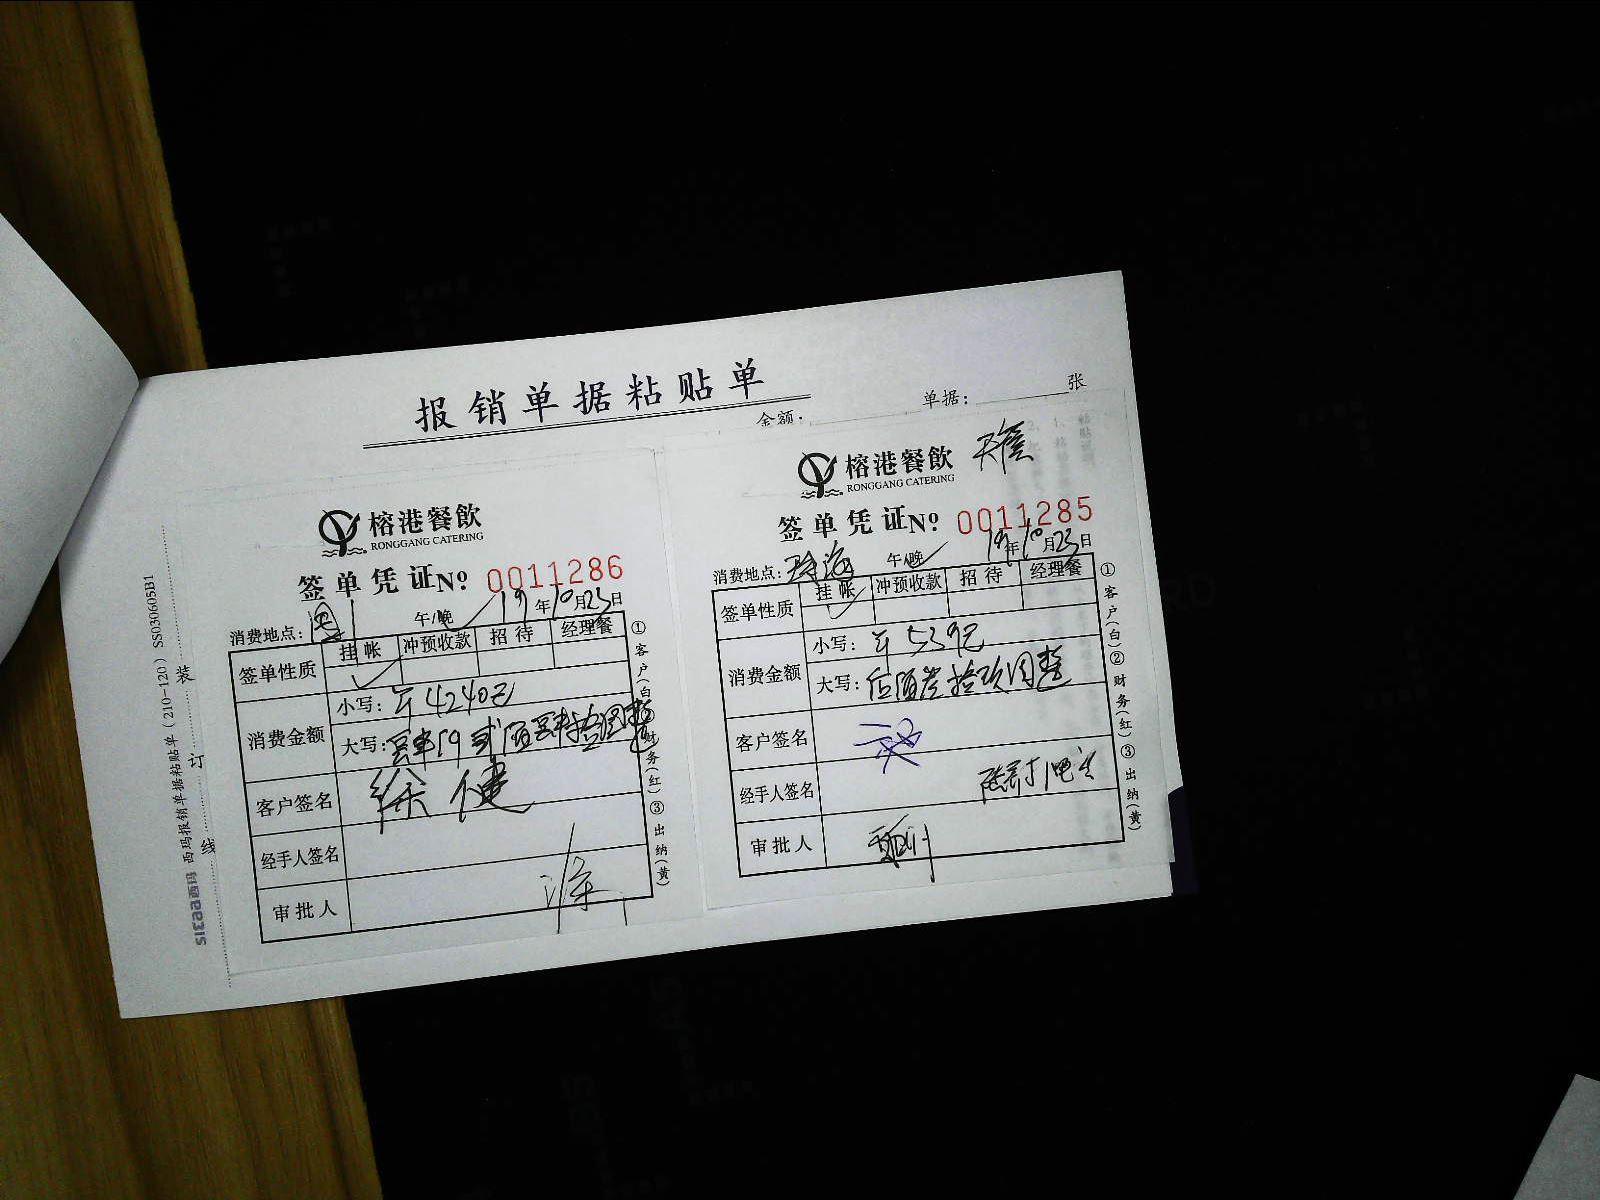 报销单据粘贴单
金额：
单据： 张
榕港餐飲
RONGGANG CATERING
签单凭证No 0011286
消费地点： 午/晚 19年10月23日
签单性质 挂帐 冲预收款 招待 经理餐
消费金额 小写：¥4240元
大写：
客户签名 徐健
经手人签名
审批人
①客户(白)②财务(红)③出纳(黄)
榕港餐飲
RONGGANG CATERING
签单凭证No 0011285
消费地点：珠海 午/晚 19年10月23日
签单性质 挂帐 冲预收款 招待 经理餐
消费金额 小写：¥539元
大写：伍佰叁拾玖圆整
客户签名
经手人签名
审批人
①客户(白)②财务(红)③出纳(黄)
装订线
SIMAA西玛 西玛报销单据粘贴单(210-120) SS030605B1